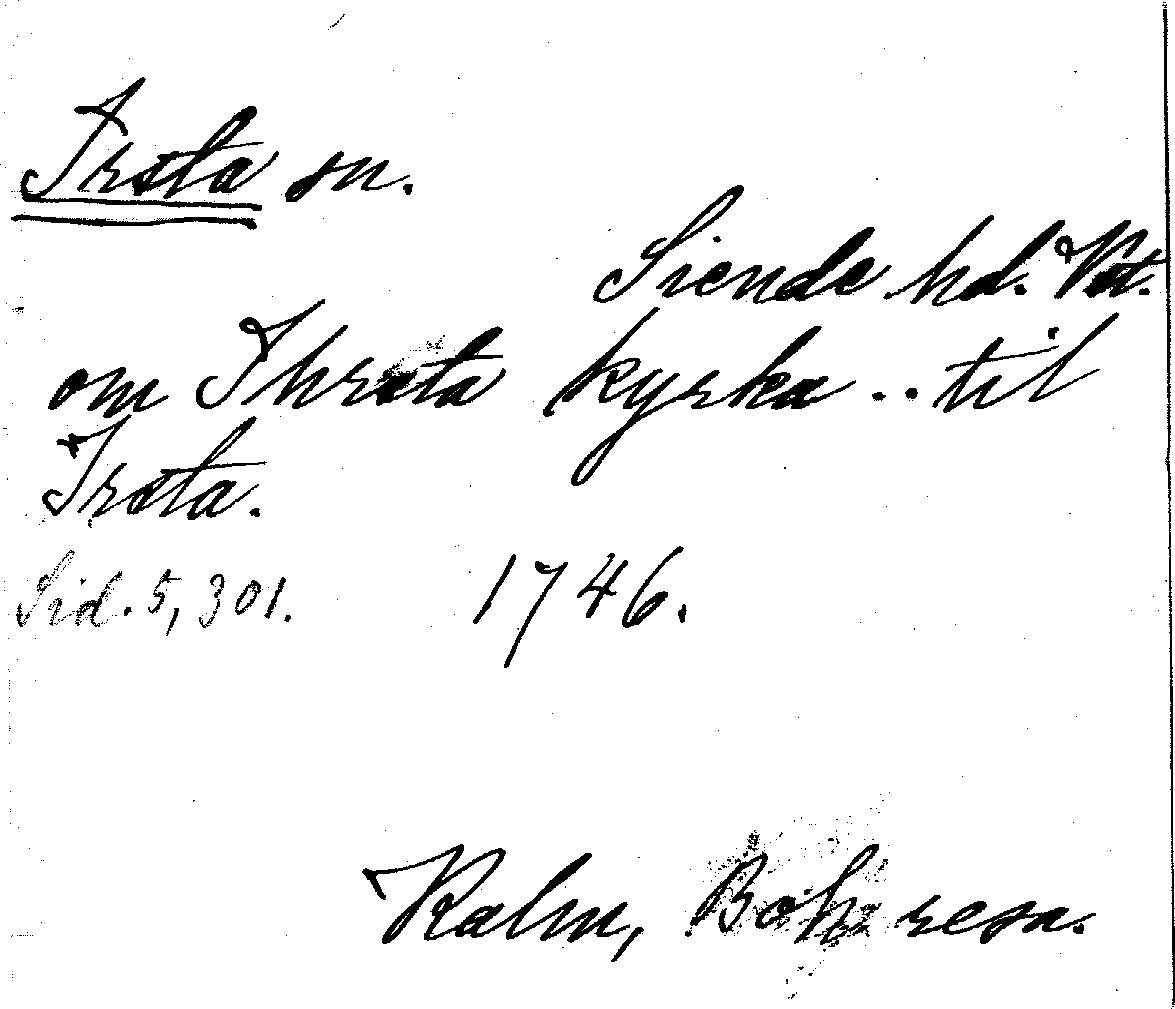 Irsta sn.
Siende hd. Vst.
om Ihrsta kyrka .. til
Irsta.
Sid. 5, 301. 1746.
Kalm, Boh. resa.